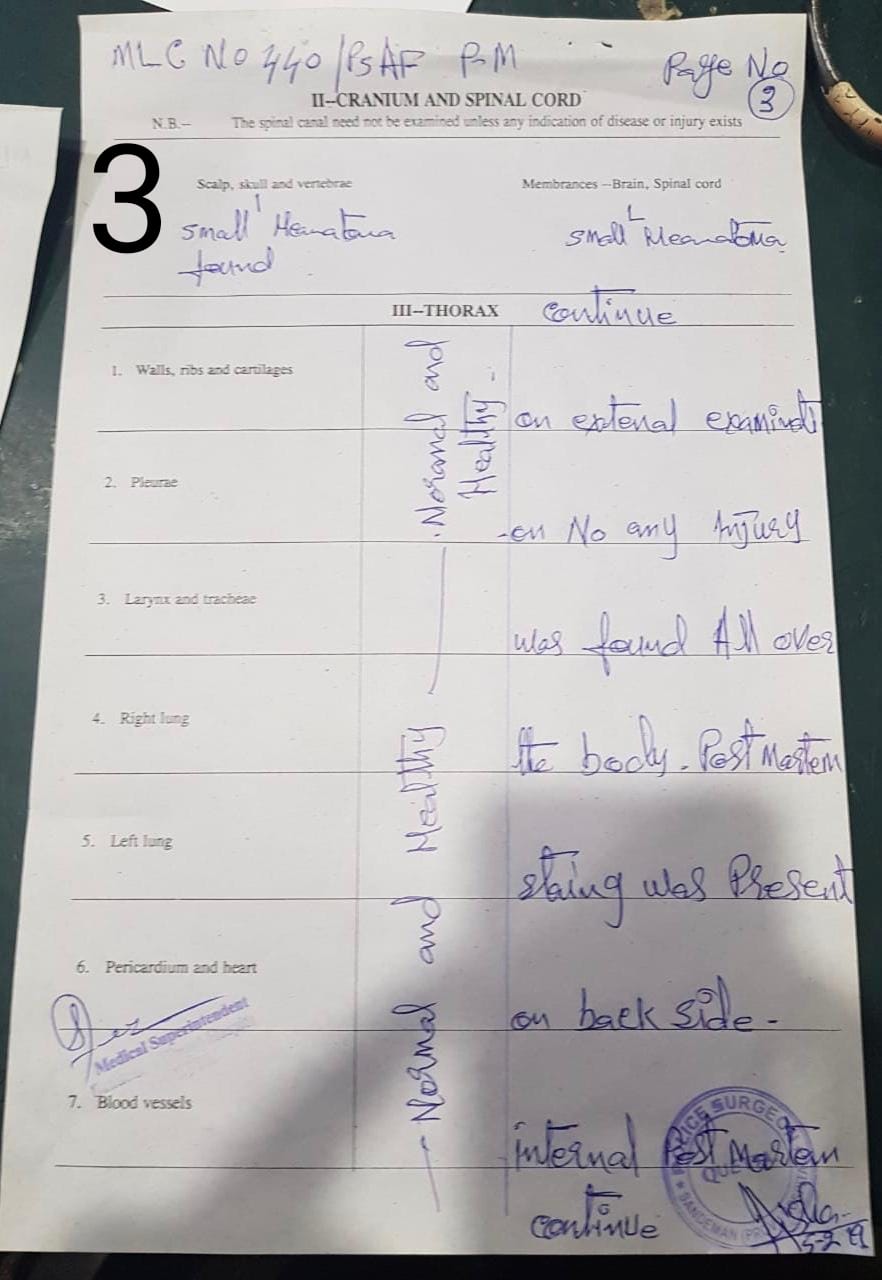 MLC No 440/PSAF P-M
Page No
3
II--CRANIUM AND SPINAL CORD
N.B.-- The spinal canal need not be examined unless any indication of disease or injury exists
3
Scalp, skull and vertebrae
Membrances --Brain, Spinal cord
small Hematoma
found
small Heamatoma
III--THORAX
Continue
1. Walls, ribs and cartilages
2. Pleurae
3. Larynx and tracheae
4. Right lung
5. Left lung
6. Pericardium and heart
7. Blood vessels
Noramal and
Healthy -
Normal and Healthy
on extenal examinati
-on No any Injury
was found All over
the body. Post Mortem
staing was Present
on back side -
internal Post Mortem
continue
Medical Superintendent
POLICE SURGEO
SANDEMAN
5-2